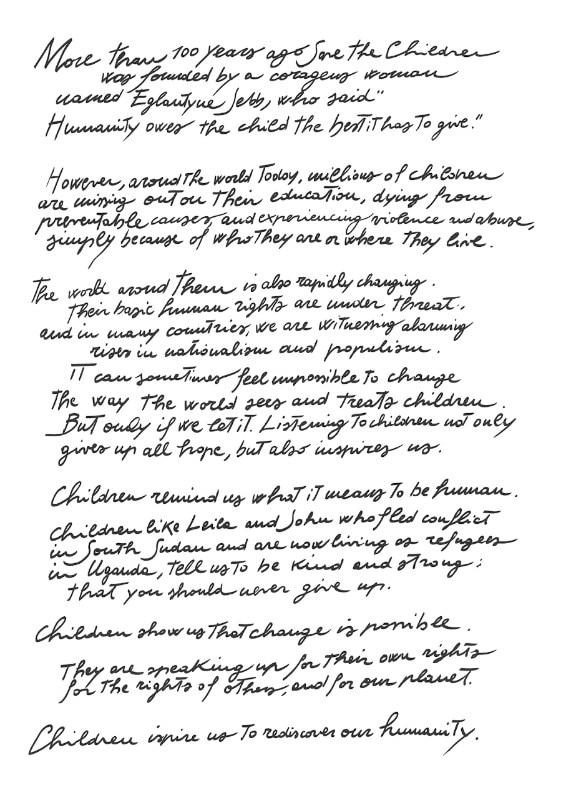 More than 100 years ago Save the Children
was founded by a corageus woman
named Eglantyne Jebb, who said "
Humanity owes the child the best it has to give."
However, around the world Today, millions of children
are missing out on Their education, dying from
preventable causes, and experiencing violence and abuse,
simply because of who They are or where They live.
The world around Them is also rapidly changing.
Their basic human rights are under threat.,
and in many countries, we are witnessing alarming
rises in nationalism and populism.
IT can sometimes feel impossible to change
The way The world sees and treats children.
But only if we let it. Listening To children not only
gives up all hope, but also inspires us.
Children remind us what it means To be human.
Children like Leila and John who fled conflict
in South Sudan and are now living as refugees
in Uganda, tell us to be kind and strong;
that you should never give up.
Children show us That change is possible.
They are speaking up for Their own rights
for The rights of others, and for our planet.
Children ispire us To rediscover our humanity.